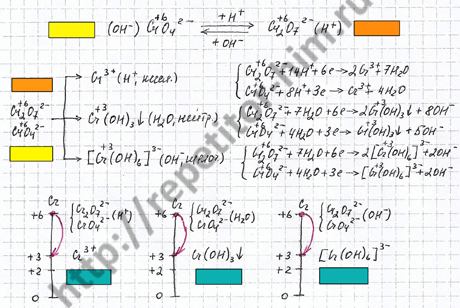 +6 +H⁺ +6
(OH⁻) CrO₄²⁻ ⇄ Cr₂O₇²⁻ (H⁺)
+OH⁻
+6
Cr₂O₇²⁻
+6
CrO₄²⁻
→ Cr³⁺ (H⁺, кисл.)
+3
→ Cr(OH)₃↓ (H₂O, нейтр)
+3
→ [Cr(OH)₆]³⁻ (OH⁻
{ Cr₂O₇²⁻ + 14H⁺ + 6e → 2Cr³⁺ + 7H₂O
CrO₄²⁻ + 8H⁺ + 3e → Cr³⁺ + 4H₂O
{ Cr₂O₇²⁻ + 7H₂O + 6e → 2Cr(OH)₃↓ + 8OH⁻
CrO₄²⁻ + 4H₂O + 3e → Cr(OH)₃↓ + 5OH⁻
{ Cr₂O₇²⁻ + 7H₂O + 6e → 2[Cr(OH)₆]³⁻ + 2OH⁻
CrO₄²⁻ + 4H₂O + 3e → [Cr(OH)₆]³⁻ + 2OH⁻
Cr
+6
{ Cr₂O₇²⁻
CrO₄²⁻ (H⁺)
+3
Cr³⁺
+2
0
Cr
+6
{ Cr₂O₇²⁻
CrO₄²⁻ (H₂O)
+3
Cr(OH)₃↓
+2
0
Cr
+6
{ Cr₂O₇²⁻
CrO₄²⁻ (OH⁻)
+3
[Cr(OH)₆]³⁻
+2
0
http://repetitor-him.ru